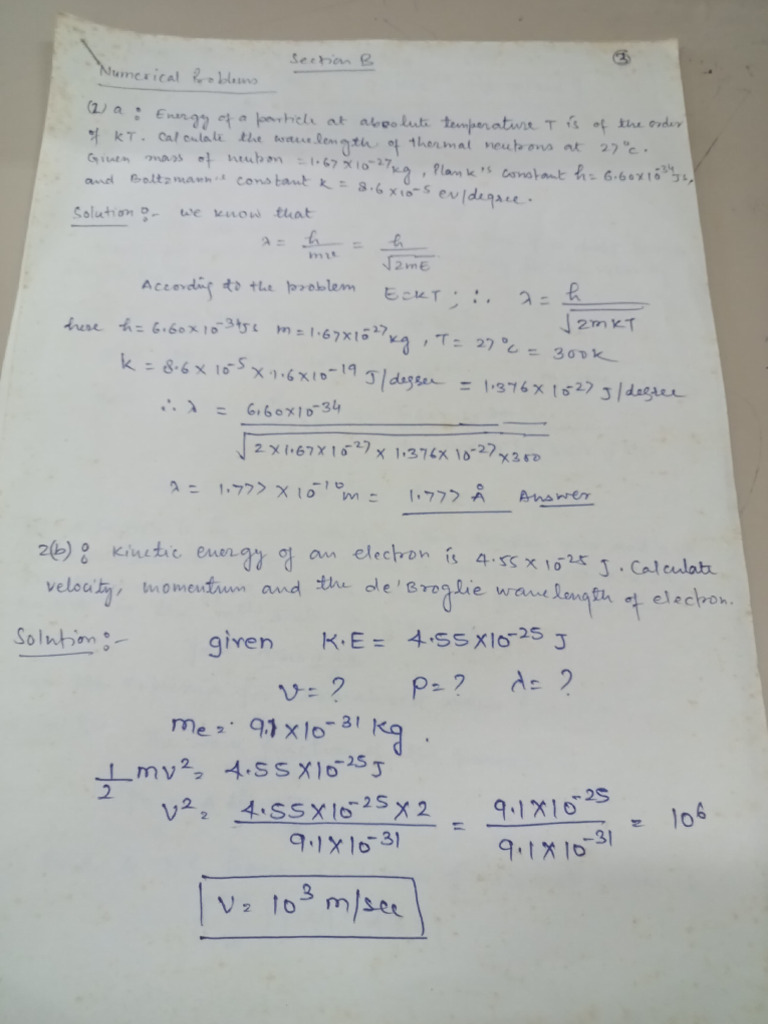 Section B
③
Numerical Problems
(2) a : Energy of a particle at absolute temperature T is of the order
of KT. Calculate the wave length of thermal neutrons at 27°C.
Given mass of neutron = 1.67 x 10-27 kg, Plank's constant h = 6.60x10-34 Js,
and Boltzmann's constant K = 8.6 x 10-5 ev/degree.
Solution :- we know that
λ = h/mv = h/√2mE
According to the problem E=KT ; ∴ λ = h/√2mKT
here h= 6.60x10-34 Js m = 1.67x10-27 kg, T= 27°C = 300K
K = 8.6 x 10-5 x 1.6x10-19 J/degree = 1.376 x 10-27 J/degree
∴ λ = 6.60x10-34
√2 x 1.67x10-27 x 1.376x 10-27 x300
λ = 1.777 x 10-10 m = 1.777 Å Answer
2(b) : Kinetic energy of an electron is 4.55 x 10-25 J. Calculate
velocity, momentum and the de'Broglie wave length of electron.
Solution :- given K.E = 4.55 x10-25 J
v= ? P= ? λ= ?
me = 9.1 x10-31 kg.
1/2 mv2 = 4.55 x10-25 J
V2 = 4.55x10-25 x 2 / 9.1x10-31 = 9.1x10-25 / 9.1 x 10-31 = 106
V= 103 m/sec